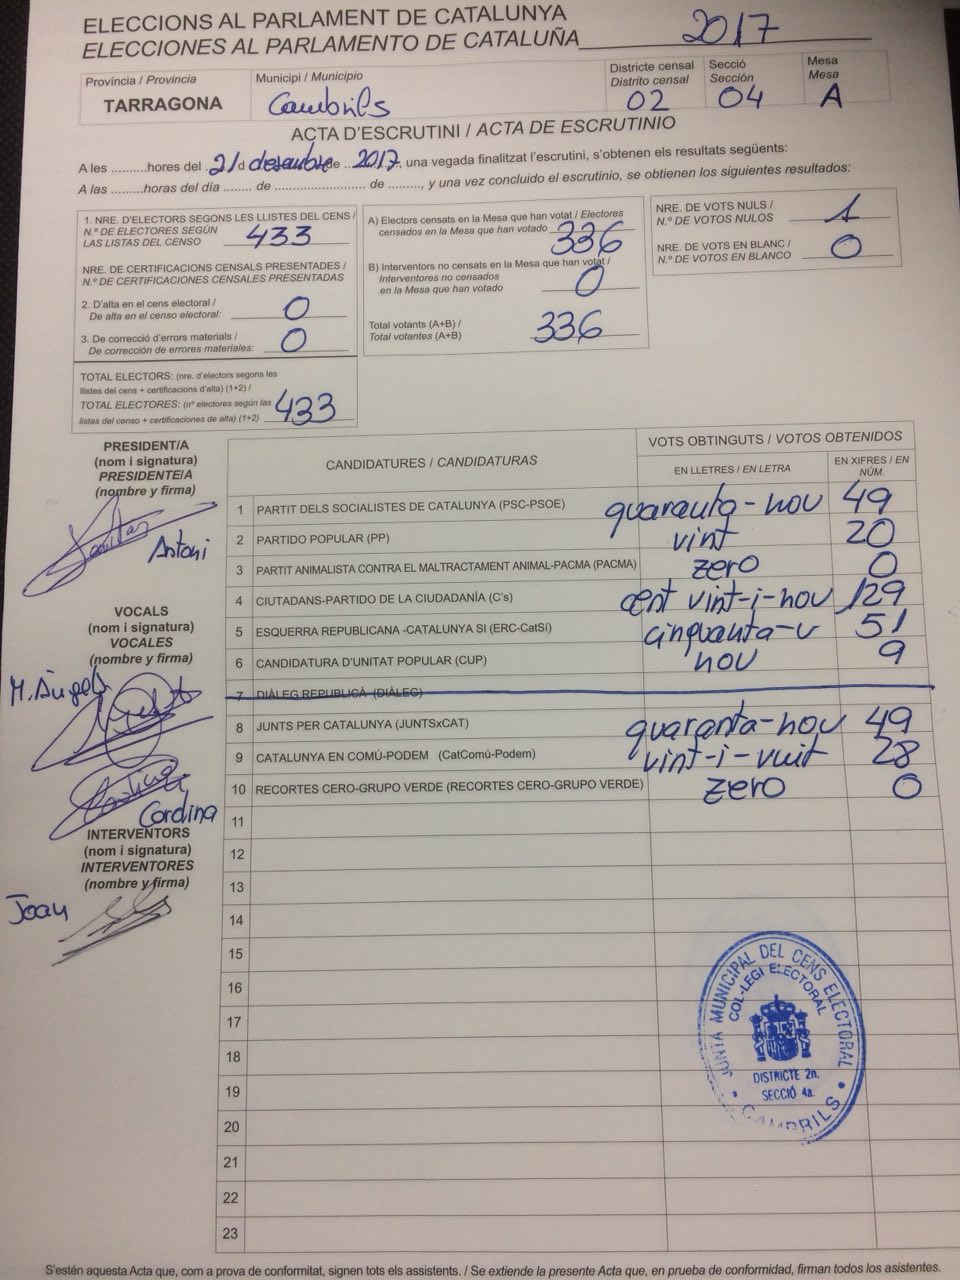 ELECCIONS AL PARLAMENT DE CATALUNYA
ELECCIONES AL PARLAMENTO DE CATALUÑA 2017
Província / Provincia
TARRAGONA
Municipi / Municipio
Cambrils
Districte censal
Distrito censal
02
Secció
Sección
04
Mesa
Mesa
A
ACTA D'ESCRUTINI / ACTA DE ESCRUTINIO
A les .........hores del 21 d desembre de 2017, una vegada finalitzat l'escrutini, s'obtenen els resultats següents:
A las .........horas del día ........ de .......................... de ........, y una vez concluido el escrutinio, se obtienen los siguientes resultados:
1. NRE. D'ELECTORS SEGONS LES LLISTES DEL CENS /
N.º DE ELECTORES SEGÚN
LAS LISTAS DEL CENSO 433
NRE. DE CERTIFICACIONS CENSALS PRESENTADES /
N.º DE CERTIFICACIONES CENSALES PRESENTADAS
2. D'alta en el cens electoral /
De alta en el censo electoral: 0
3. De correcció d'errors materials /
De corrección de errores materiales: 0
TOTAL ELECTORS: (nre. d'electors segons les
llistes del cens + certificacions d'alta) (1+2) /
TOTAL ELECTORES: (nº electores según las
listas del censo + certificaciones de alta) (1+2) 433
A) Electors censats en la Mesa que han votat / Electores
censados en la Mesa que han votado 336
B) Interventors no censats en la Mesa que han votat /
Interventores no censados
en la Mesa que han votado 0
Total votants (A+B) /
Total votantes (A+B) 336
NRE. DE VOTS NULS /
N.º DE VOTOS NULOS 1
NRE. DE VOTS EN BLANC /
N.º DE VOTOS EN BLANCO 0
PRESIDENT/A
(nom i signatura)
PRESIDENTE/A
(nombre y firma)
Antoni
VOCALS
(nom i signatura)
VOCALES
(nombre y firma)
M. Àngels
Cordina
INTERVENTORS
(nom i signatura)
INTERVENTORES
(nombre y firma)
Joan
CANDIDATURES / CANDIDATURAS
VOTS OBTINGUTS / VOTOS OBTENIDOS
EN LLETRES / EN LETRA
EN XIFRES / EN
NÚM.
1 PARTIT DELS SOCIALISTES DE CATALUNYA (PSC-PSOE) quaranta-nou 49
2 PARTIDO POPULAR (PP) vint 20
3 PARTIT ANIMALISTA CONTRA EL MALTRACTAMENT ANIMAL-PACMA (PACMA) zero 0
4 CIUTADANS-PARTIDO DE LA CIUDADANÍA (C's) cent vint-i-nou 129
5 ESQUERRA REPUBLICANA -CATALUNYA SI (ERC-CatSí) cinquanta-u 51
6 CANDIDATURA D'UNITAT POPULAR (CUP) nou 9
7 DIÀLEG REPUBLICÀ (DIÀLEG)
8 JUNTS PER CATALUNYA (JUNTSxCAT) quaranta-nou 49
9 CATALUNYA EN COMÚ-PODEM (CatComú-Podem) vint-i-vuit 28
10 RECORTES CERO-GRUPO VERDE (RECORTES CERO-GRUPO VERDE) zero 0
11
12
13
14
15
16
17
18
19
20
21
22
23
JUNTA MUNICIPAL DEL CENS ELECTORAL
COL·LEGI ELECTORAL
DISTRICTE 2n.
SECCIÓ 4a.
CAMBRILS
S'estén aquesta Acta que, com a prova de conformitat, signen tots els assistents. / Se extiende la presente Acta que, en prueba de conformidad, firman todos los asistentes.